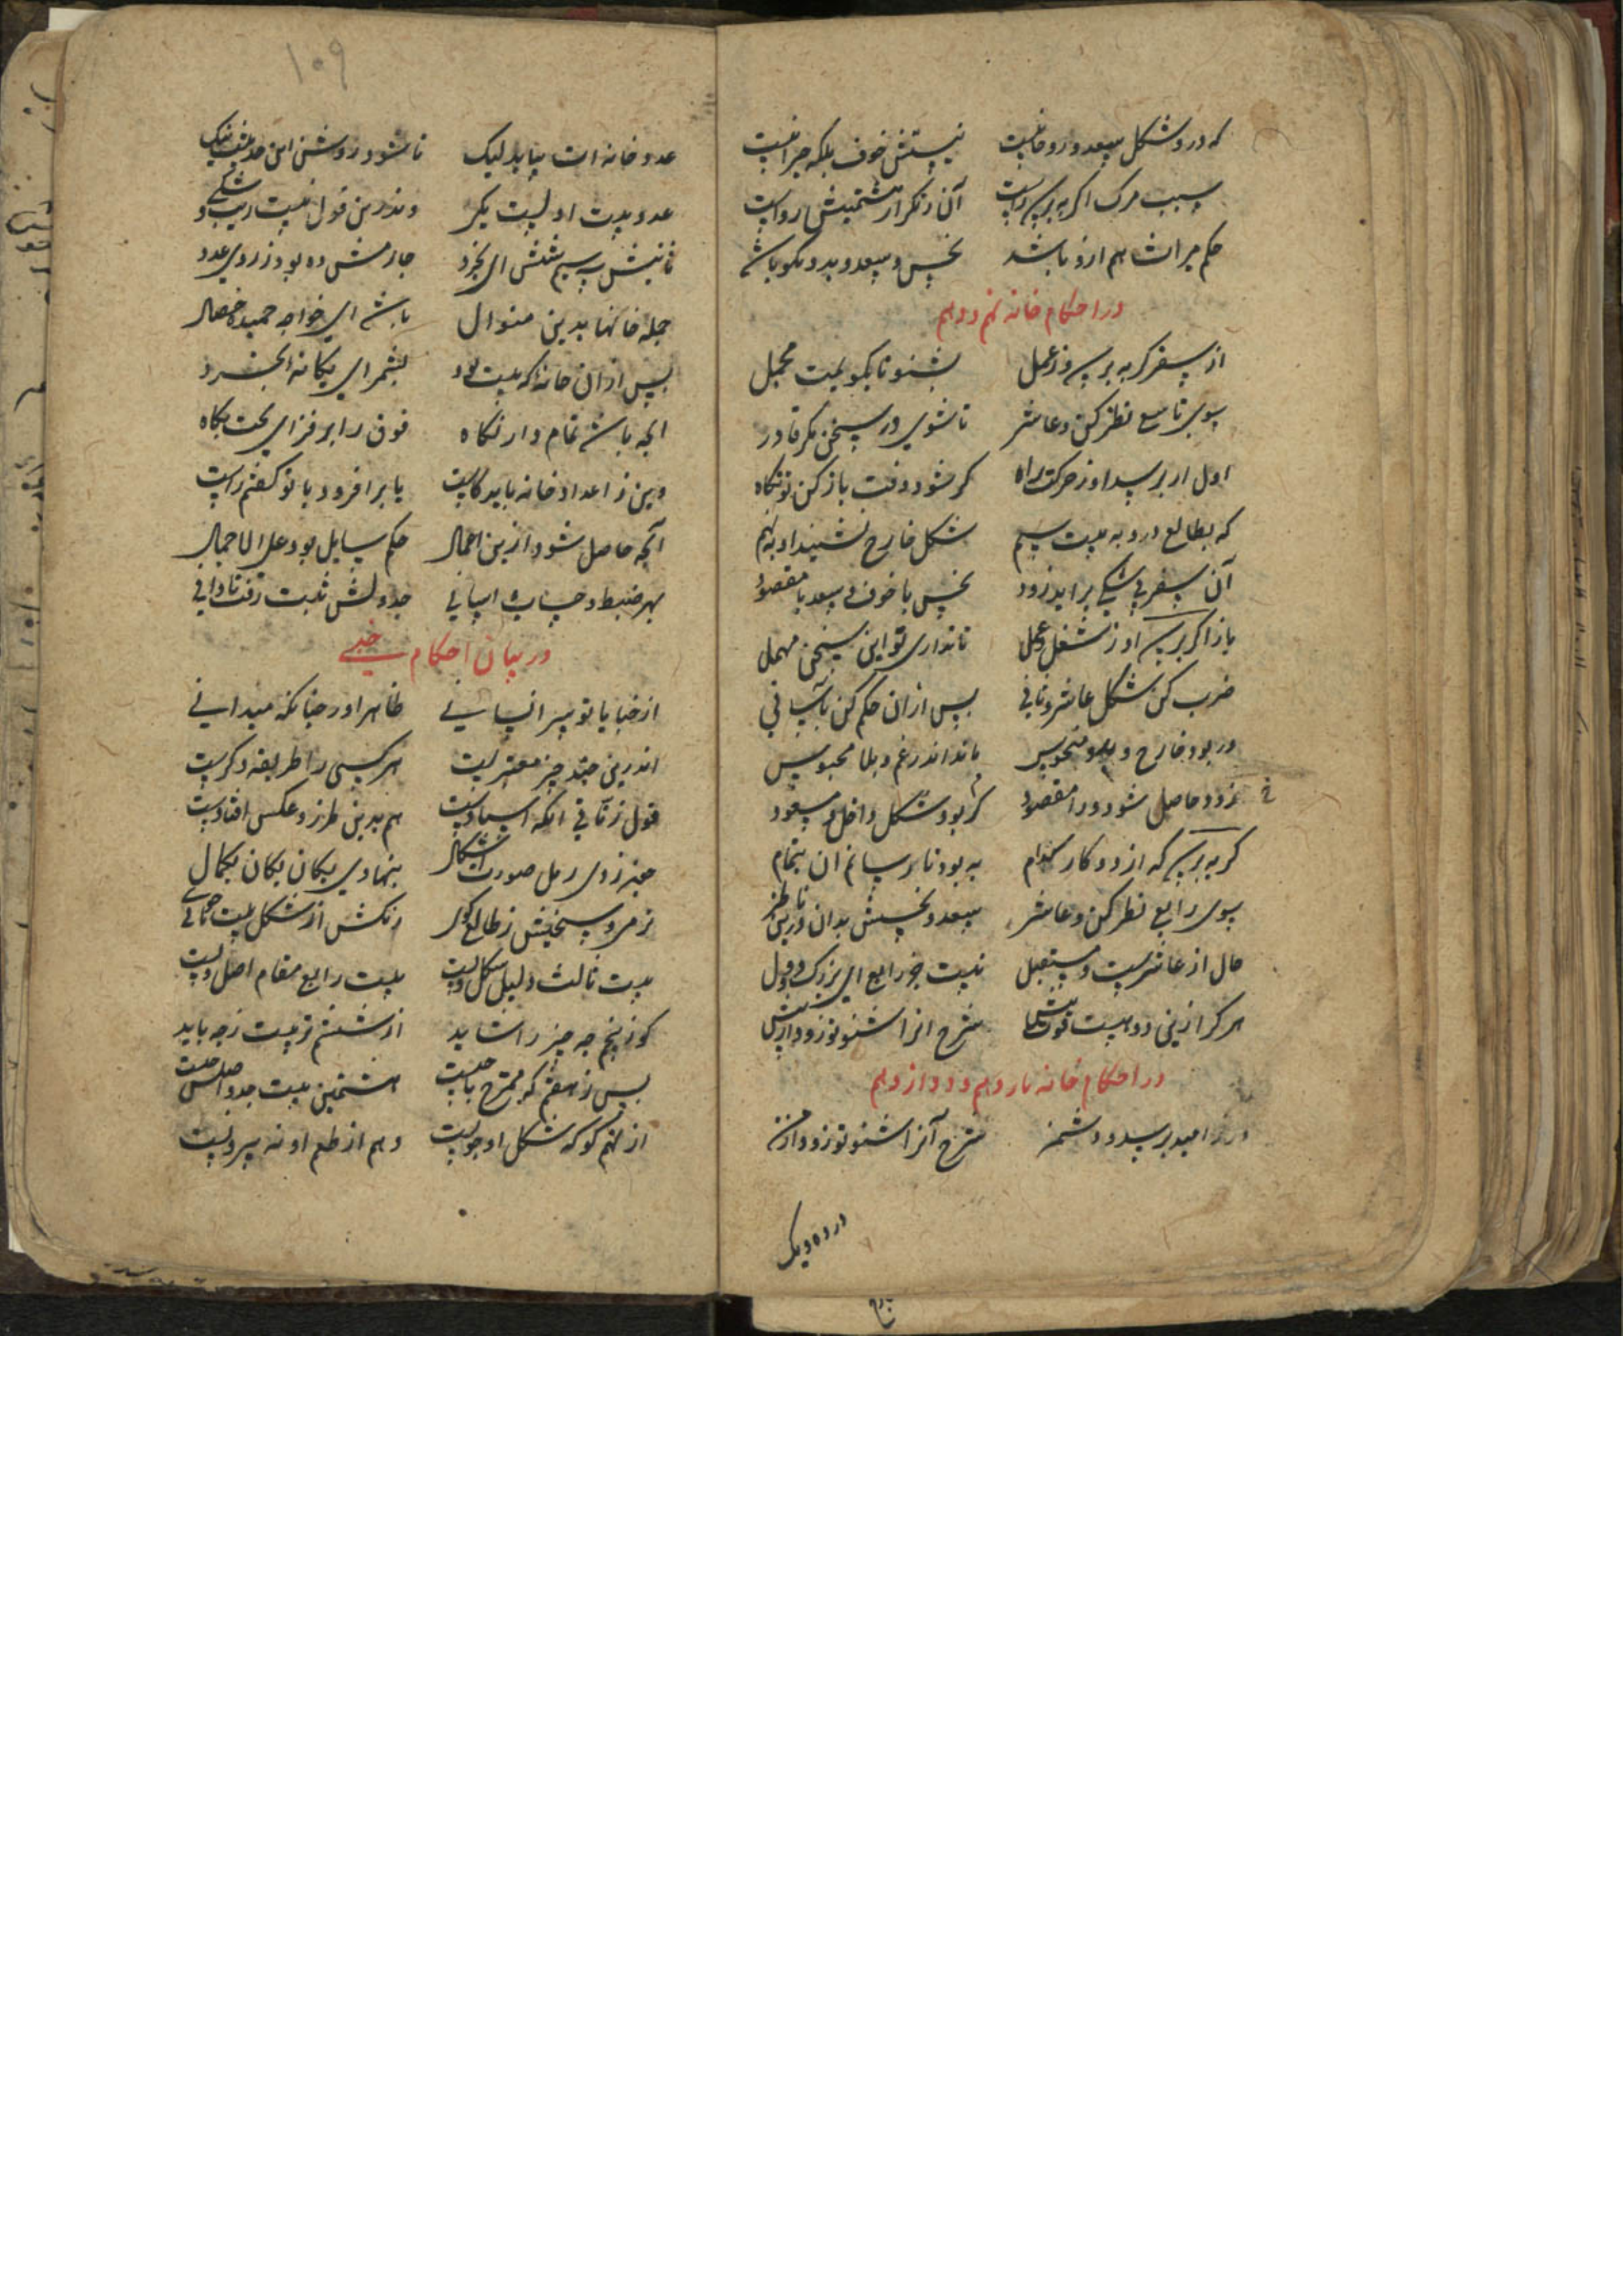 که درو شکل سعد و روحانیست نیستش خوف بلکه جز آنیست
سبب مرگ اگر بپرسد راست آن ز تکرار هشتمینش رواست
حکم میراث هم ازو باشد نحس و سعد و بد و نکو باشد
در احکام خانه نهم و دهم
از سفر گر بپرسد و ز عمل بشنو تا بگویمت مجمل
سوی تاسع نظر کن و عاشر تا شوی در سخن مگر قادر
اول ار پرسد او ز حرکت راه گر شود وفت باز کن تو نگاه
که بطالع درو به بیت سیم شکل خارج نشیند او به نهم
آن سفر بی شکی برآید زود نحس با خوف و سعد با مقصود
باز اگر پرسد او ز شغل و عمل تا نداری تو این سخن مهمل
ضرب کن شکل عاشر و ثانی پس از آن حکم کن بآسانی
ور بود خارج و منحوس ماند اندر غم و بلا محبوس
زود حاصل شود ورا مقصود گر بود شکل داخل و مسعود
گر بپرسد که از دو کار کدام به بود تا رسانم آن بتمام
سوی رابع نظر کن و عاشر سعد و نحسش بدان و ناظر
حال از عاشرست و مستقبل نیست جز رابع ای بزرگ و
هر کز این دو هست قوت بیش شرح آنرا شنو تو زود از پیش
در احکام خانه یازدهم و دوازدهم
ور ز امید پرسد و دشمن شرح آنرا شنو تو زود از من
در ده و یک
۱۰۹
عدد خانه ات بباید لیک تا شود روشن این حدیث نیک
عدد بیت اولست یکی وندرین قول نیست ریب و شکی
ثانیش سیم شش ای بخرد چارمش ده بود ز روی عدد
جمله خانها بدین منوال باشد ای خواجه حمیده خصال
پس از آن خانه که بیت بود بشمر ای یگانه الخرد
آنچه باشد تمام دار نگاه فوق را بر فزای بخت نگاه
وین ز اعداد خانه باید کاست یا برافزود با تو گفتم راست
آنچه حاصل شود ازین اعمال حکم سایل بود علی الاجمال
بهر ضبط و حساب و آسانی جدولش ثبت رفت تا دانی
در بیان احکام خبی
از خبایا تو سر انسانی ظاهر آور چنانکه میدانی
اندرین چند چیز معتبر است هر کسی را طریقه دگرست
قول زناتی آنکه استادست هم بدین طرز و عکس افتادست
خبز زوی رمل صورت اشکال بنهادی یکان یکان بکمال
نرمی و سختیش ز طالع گوی رنگش از شکل بیت جوی
بیت ثالث دلیل شکل ویست بیت رابع مقام اصل ویست
گو ز پنجم چه چیز را شاید از ششم تربیت ز چه باید
پس ز هفتم که ممتزج با چیست هشتمین بیت
از نهم گو که شکل او چونست دهم از طعم او نه بیرونست